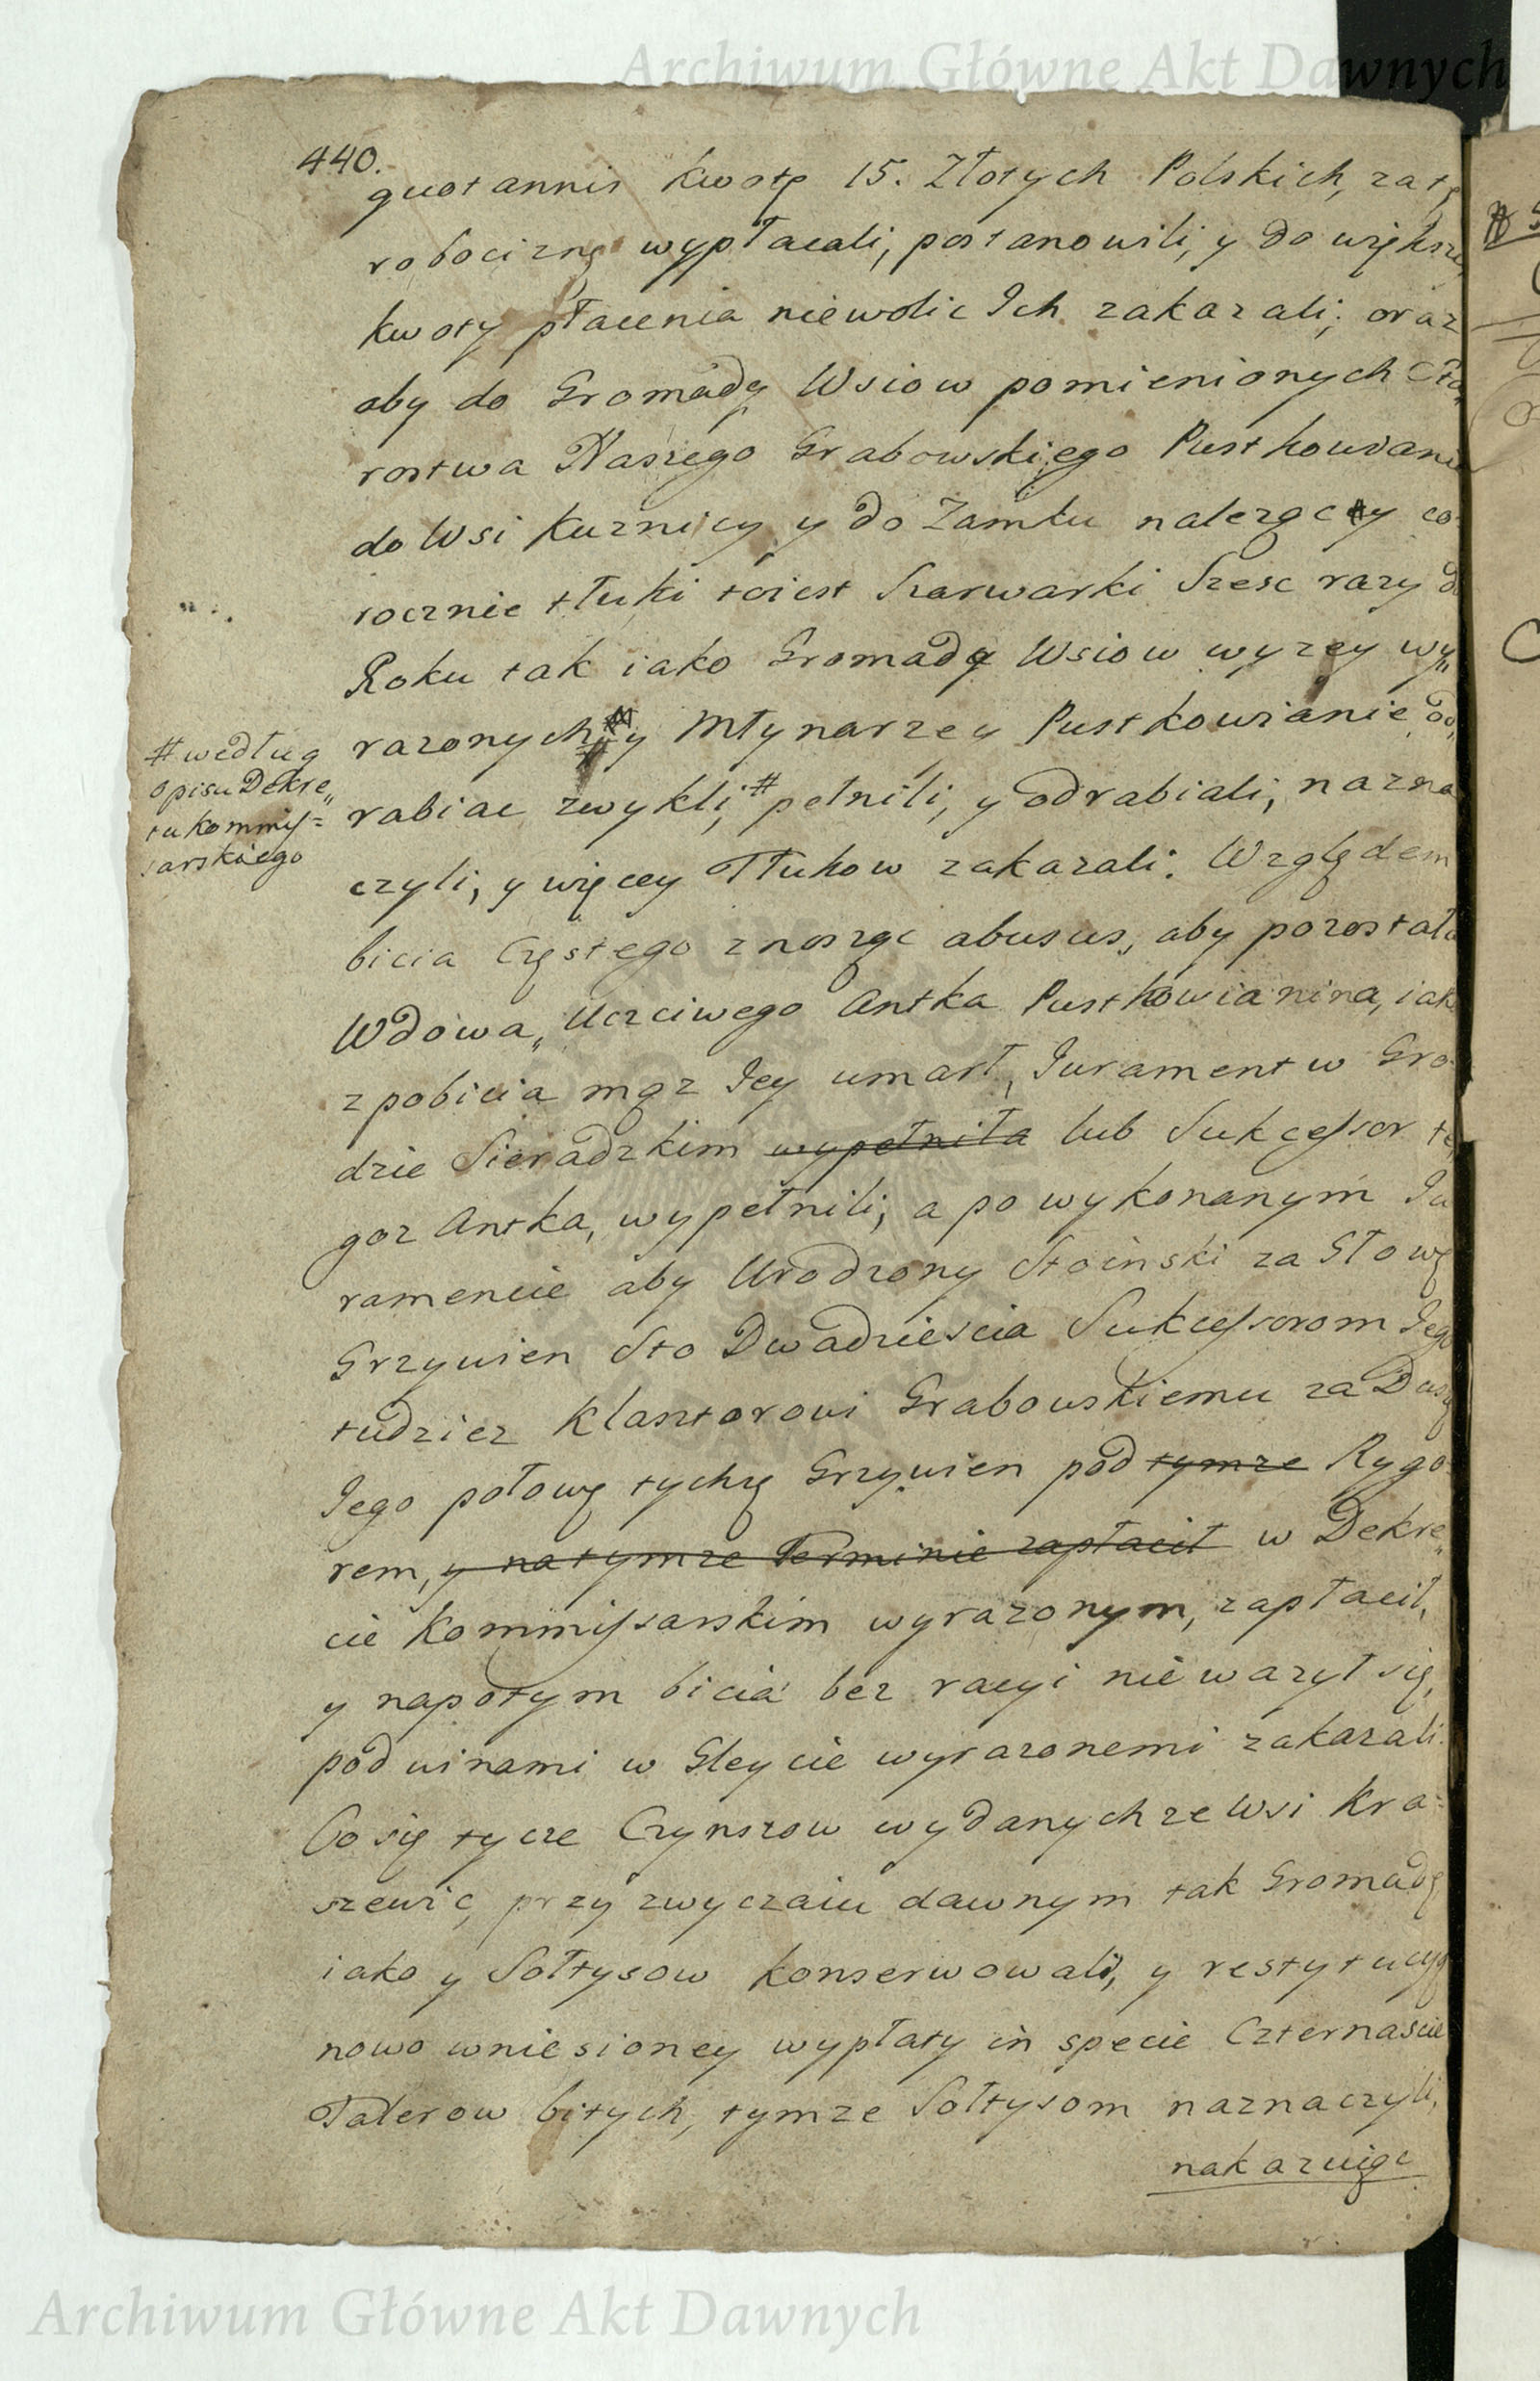 Archiwum Główne Akt Dawnych
440.
quotannis kwotę 15. Złotych Polskich, za tę
robociznę wypłacali, postanowili, y do większey
kwoty płacenia niewolic Ich zakazali; oraz
aby do Gromady Wsiow pomienionych Sta„
rostwa Naszego Grabowskiego Pustkowianie
do Wsi Kuznicy y do Zamku nalezący co
rocznie tłuki toiest Szarwarki Szesc razy do
Roku tak iako Gromady Wsiow wyzey wy„
razonych y Młynarze y Pustkowianie od„
rabiac zwykli,# pełnili, y odrabiali, nazna
# według
opisu Dekre„
tu kommis=
sarskiego
czyli, y więcey Tłukow zakazali. Względem
bicia Częstego znosząc abusus, aby pozostała
Wdowa„ Uczciwego Antka Pustkowianina, iako
z pobicia mąz Jey umarł, Jurament w Gro
dzie Sieradzkim wypełniła lub Sukcessor te
goz Antka, wypełnili, a po wykonanym Ju
ramencie aby Urodzony Stoinski za Głowę
Grzywien Sto Dwadziescia Sukcessorom Jego
tudziez Klasztorowi Grabowskiemu za Duszę
Jego połowę tychzę Grzywien pod tymze Rygo
rem, y na tymze Terminie zapłacił w Dekre„
cie Kommissarskim wyrazonym, zapłacił,
y napotym bicia bez racyi niewazył się,
pod winami w Gleycie wyrazonemi zakazali.
Co się tycze Czynszow wydanych ze Wsi Kra=
szewic, przy zwyczaiu dawnym tak Gromadę
iako y Sołtysow konserwowali, y restytucyą
nowo wniesioney wypłaty in specie Czternascie
Talerow bitych, tymze Sołtysom naznaczyli,
nakazuiąc
Archiwum Główne Akt Dawnych